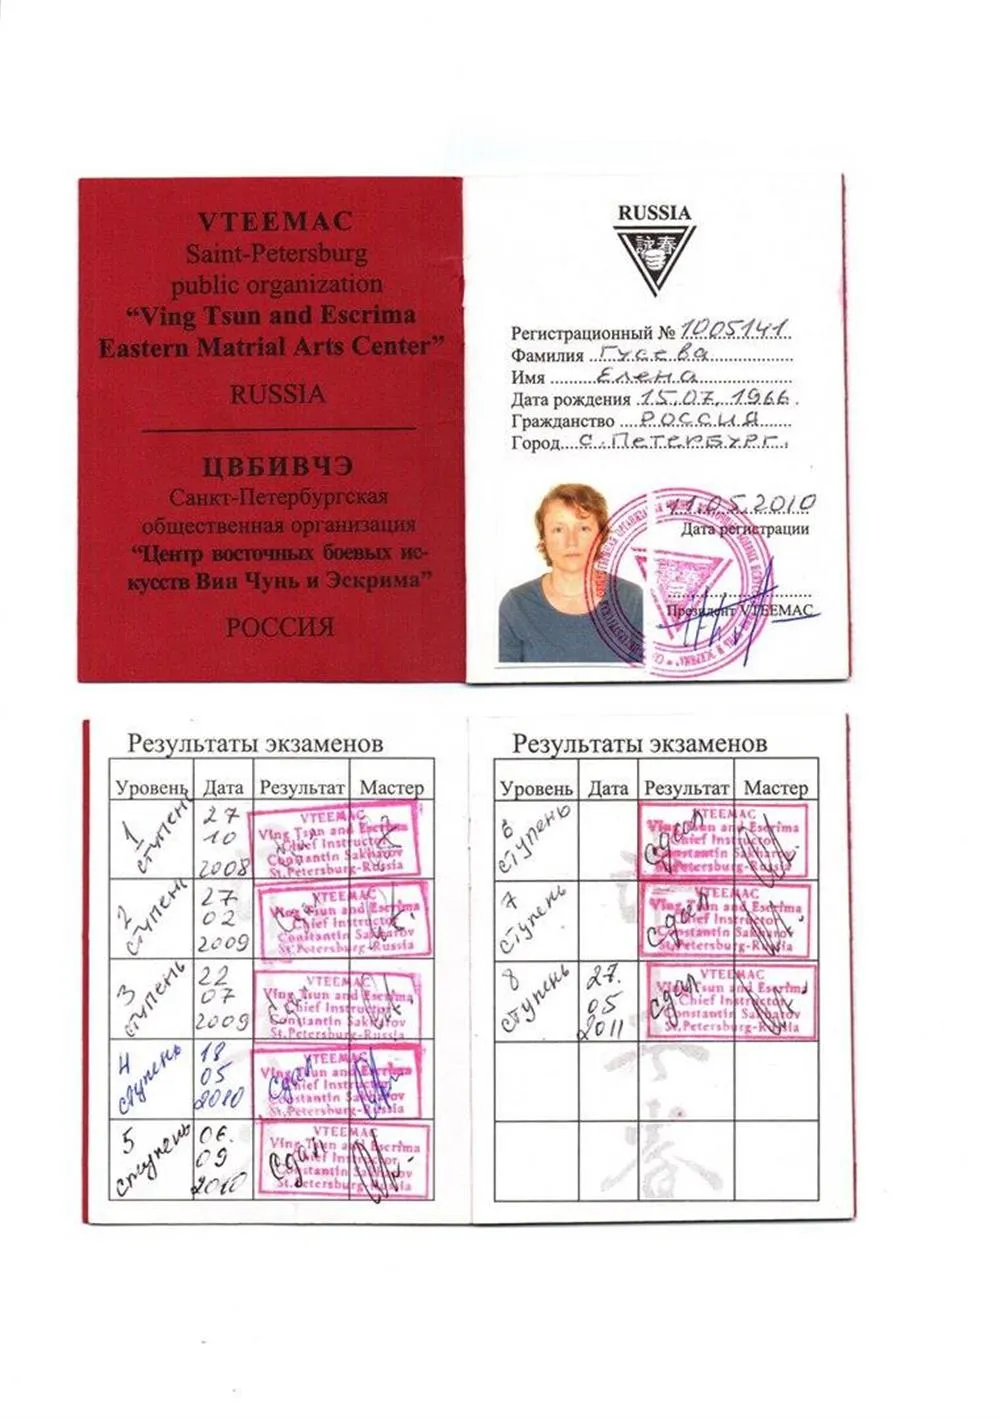 VTEEMAC
Saint-Petersburg
public organization
“Ving Tsun and Escrima
Eastern Matrial Arts Center”
RUSSIA
ЦВБИВЧЭ
Санкт-Петербургская
общественная организация
“Центр восточных боевых ис-
кусств Вин Чунь и Эскрима”
РОССИЯ
RUSSIA
詠春
Регистрационный № 1005141
Фамилия Гусева
Имя Елена
Дата рождения 15.07.1966.
Гражданство РОССИЯ
Город С.ПЕТЕРБУРГ.
11.05.2010
Дата регистрации
Президент VTEEMAC
Результаты экзаменов
Уровень Дата Результат Мастер
1 ступень 27 10 2008
VTEEMAC
Ving Tsun and Escrima
Chief Instructor
Constantin Sakharov
St.Petersburg-Russia
2 ступень 27 02 2009 Сдал
VTEEMAC
Ving Tsun and Escrima
Chief Instructor
Constantin Sakharov
St.Petersburg-Russia
3 ступень 22 07 2009
VTEEMAC
Ving Tsun and Escrima
Chief Instructor
Constantin Sakharov
St.Petersburg-Russia
4 ступень 18 05 2010 Сдал
VTEEMAC
Ving Tsun and Escrima
Chief Instructor
Constantin Sakharov
St.Petersburg-Russia
5 ступень 06. 09 2010 Сдал
VTEEMAC
Ving Tsun and Escrima
Chief Instructor
Constantin Sakharov
St.Petersburg-Russia
Результаты экзаменов
Уровень Дата Результат Мастер
6 ступень сдал
VTEEMAC
Ving Tsun and Escrima
Chief Instructor
Constantin Sakharov
St.Petersburg-Russia
7 ступень сдал
VTEEMAC
Ving Tsun and Escrima
Chief Instructor
Constantin Sakharov
St.Petersburg-Russia
8 ступень 27. 05 2011 сдал
VTEEMAC
Ving Tsun and Escrima
Chief Instructor
Constantin Sakharov
St.Petersburg-Russia